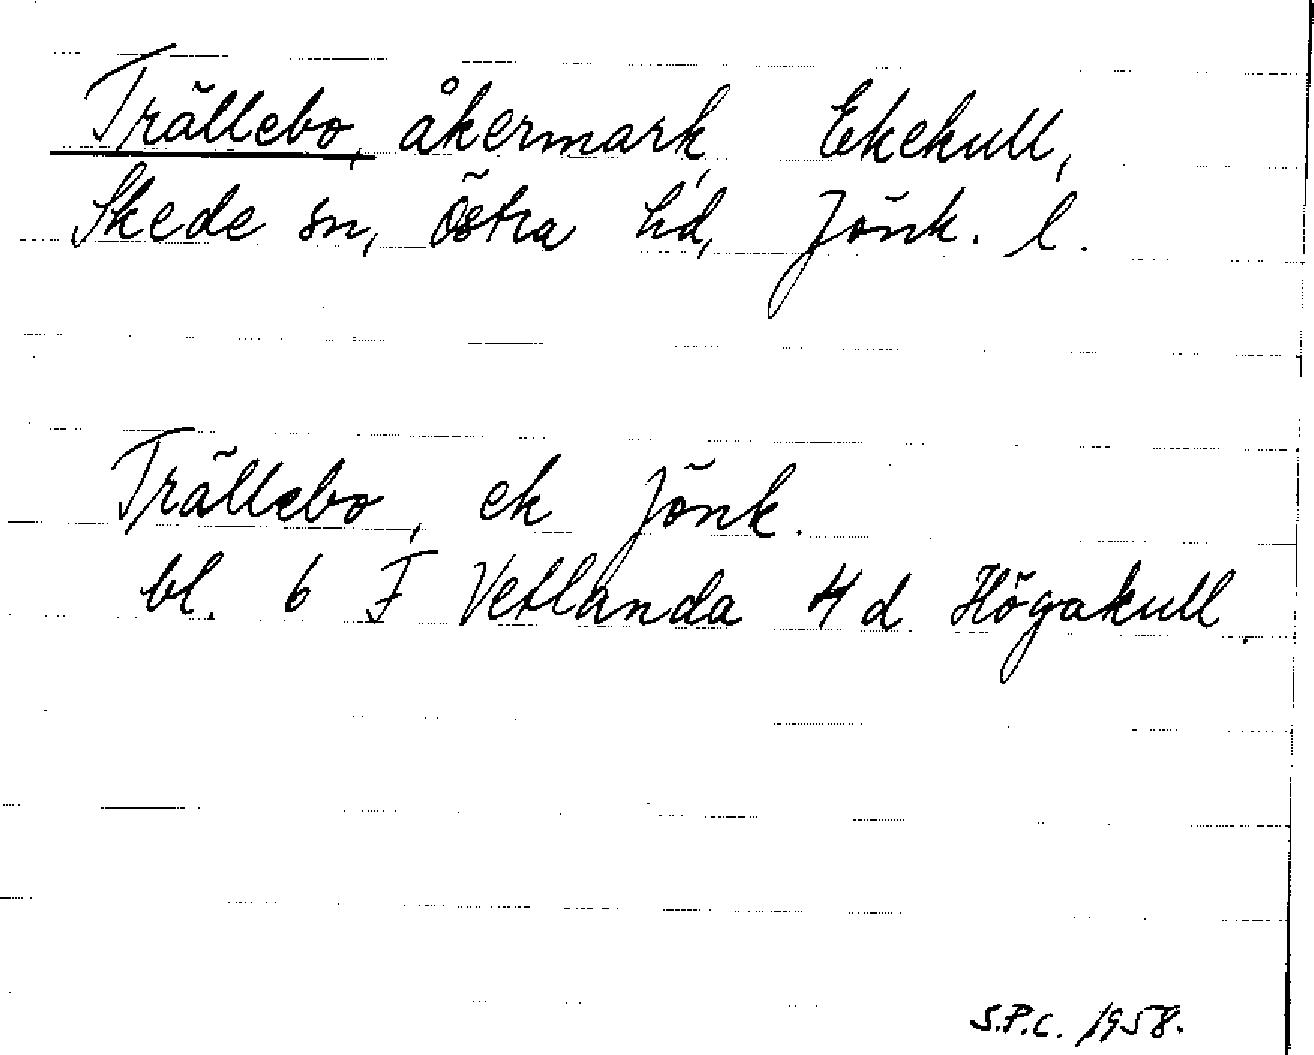 Trällebo, åkermark, Ekekull,
Skede sn, Östra hd, Jönk. l.
Trällebo, ek Jönk.
bl. 6 F Vetlanda 4 d Högakull.
S.P.C. 1958.